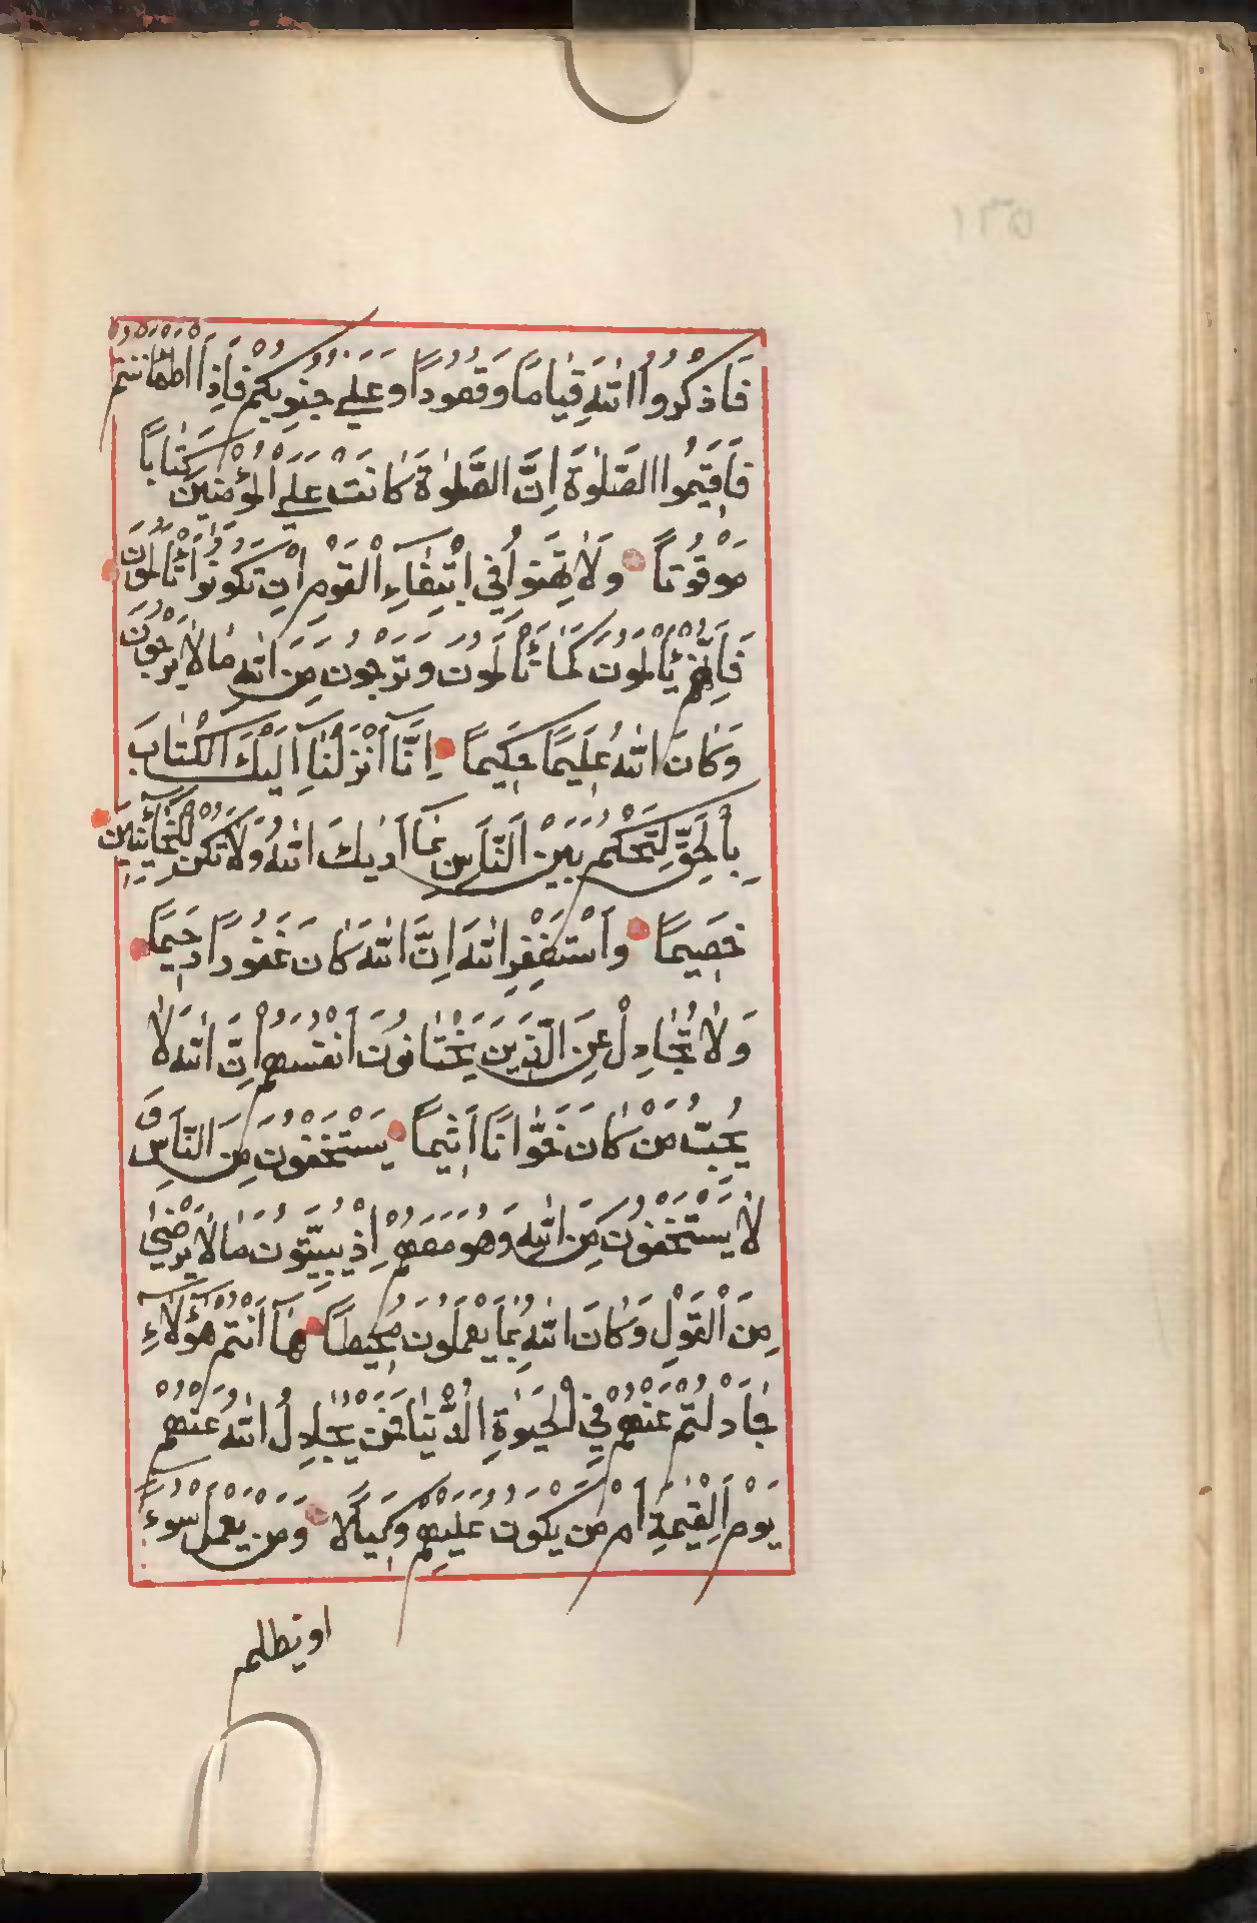 ١٣٥
فَاذْكُرُوا اللّٰهَ قِيٰامًا وَقُعُودًا وَعَلٰى جُنُوبِكُمْ فَاِذَا اطْمَأْنَنْتُمْ
فَاَقِيمُوا الصَّلٰوةَ اِنَّ الصَّلٰوةَ كٰانَتْ عَلَى الْمُؤْمِنِينَ كِتٰابًا
مَوْقُوتًا وَلٰا تَهِنُوا فِي ابْتِغٰاءِ الْقَوْمِ اِنْ تَكُونُوا تَأْلَمُونَ
فَاِنَّهُمْ يَأْلَمُونَ كَمٰا تَأْلَمُونَ وَتَرْجُونَ مِنَ اللّٰهِ مٰا لٰا يَرْجُونَ
وَكٰانَ اللّٰهُ عَلِيمًا حَكِيمًا اِنَّا اَنْزَلْنٰا اِلَيْكَ الْكِتٰابَ
بِالْحَقِّ لِتَحْكُمَ بَيْنَ النَّاسِ بِمٰا اَرٰيكَ اللّٰهُ وَلٰا تَكُنْ لِلْخٰائِنِينَ
خَصِيمًا وَاسْتَغْفِرِ اللّٰهَ اِنَّ اللّٰهَ كٰانَ غَفُورًا رَحِيمًا
وَلٰا تُجٰادِلْ عَنِ الَّذِينَ يَخْتٰانُونَ اَنْفُسَهُمْ اِنَّ اللّٰهَ لٰا
يُحِبُّ مَنْ كٰانَ خَوَّانًا اَثِيمًا يَسْتَخْفُونَ مِنَ النَّاسِ وَ
لٰا يَسْتَخْفُونَ مِنَ اللّٰهِ وَهُوَ مَعَهُمْ اِذْ يُبَيِّتُونَ مٰا لٰا يَرْضٰى
مِنَ الْقَوْلِ وَكٰانَ اللّٰهُ بِمٰا يَعْمَلُونَ مُحِيطًا هٰا اَنْتُمْ هٰؤُلٰاءِ
جٰادَلْتُمْ عَنْهُمْ فِي الْحَيٰوةِ الدُّنْيٰا فَمَنْ يُجٰادِلُ اللّٰهَ عَنْهُمْ
يَوْمَ الْقِيٰمَةِ اَمْ مَنْ يَكُونُ عَلَيْهِمْ وَكِيلًا وَمَنْ يَعْمَلْ سُوءً
او يظلم